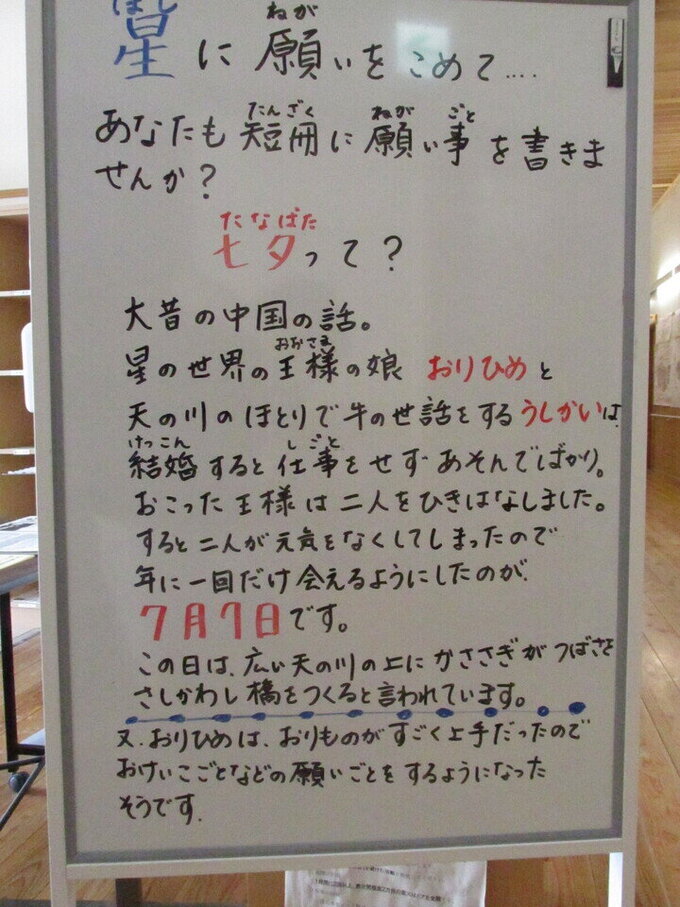 星に願いをこめて....
あなたも短冊に願い事を書きま
せんか?
七夕って?
大昔の中国の話。
星の世界の王様の娘 おりひめと
天の川のほとりで牛の世話をするうしかいは、
結婚すると仕事をせずあそんでばかり。
おこった王様は二人をひきはなしました。
すると二人が元気をなくしてしまったので
年に一回だけ会えるようにしたのが、
7月7日です。
この日は、広い天の川の上にかささぎがつばさを
さしかわし橋をつくると言われています。
又、おりひめは、おりものがすごく上手だったので
おけいこごとなどの願いごとをするようになった
そうです.